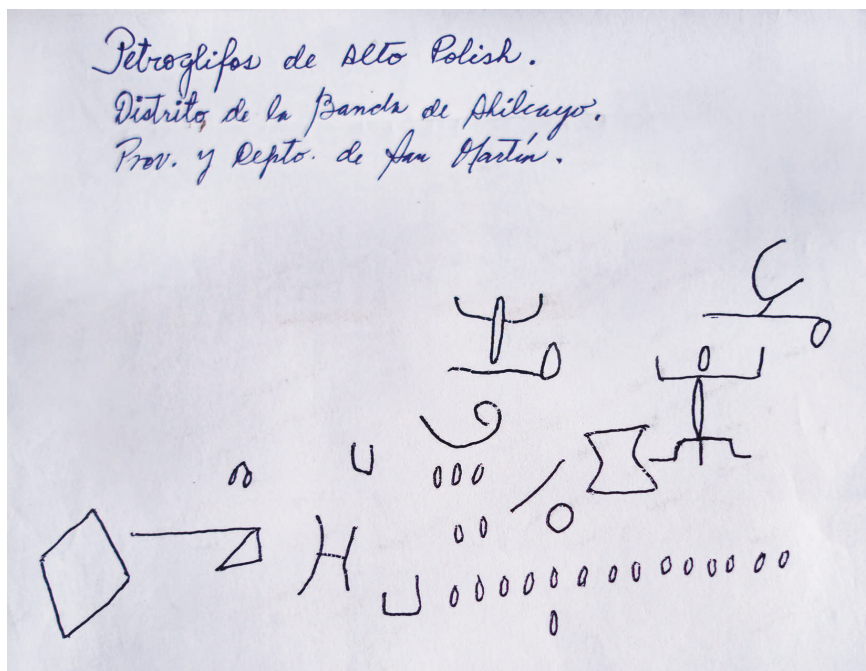 Petroglifos de Alto Polish.
Distrito de la Banda de Shilcayo.
Prov. y Depto. de San Martín.